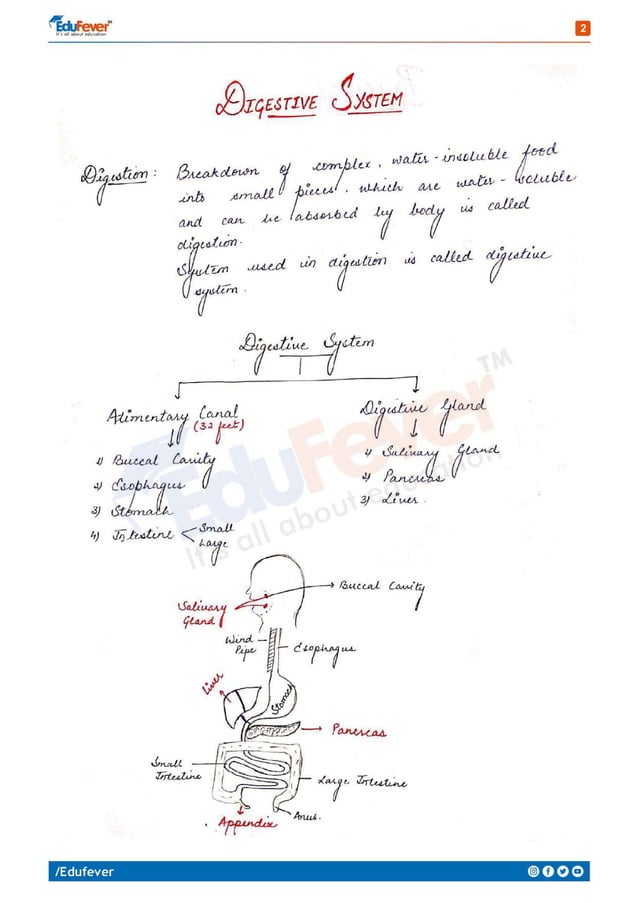 EduFever™
It's all about education
2
DIGESTIVE SYSTEM
Digestion: Breakdown of complex, water-insoluble food
into small pieces, which are water-soluble
and can be absorbed by body is called
digestion.
System used in digestion is called digestive
system.
Digestive System
Alimentary Canal
(32 feet)
1) Buccal Cavity
2) Esophagus
3) Stomach
4) Intestine < Small
Large
Digestive Gland
1) Salivary Gland
2) Pancreas
3) Liver.
EduFever™
It's all about education
Buccal Cavity
Salivary
Gland
Wind
Pipe
Esophagus
Liver
Stomach
Pancreas
Small
Intestine
Large Intestine
Appendix
Anus.
/Edufever